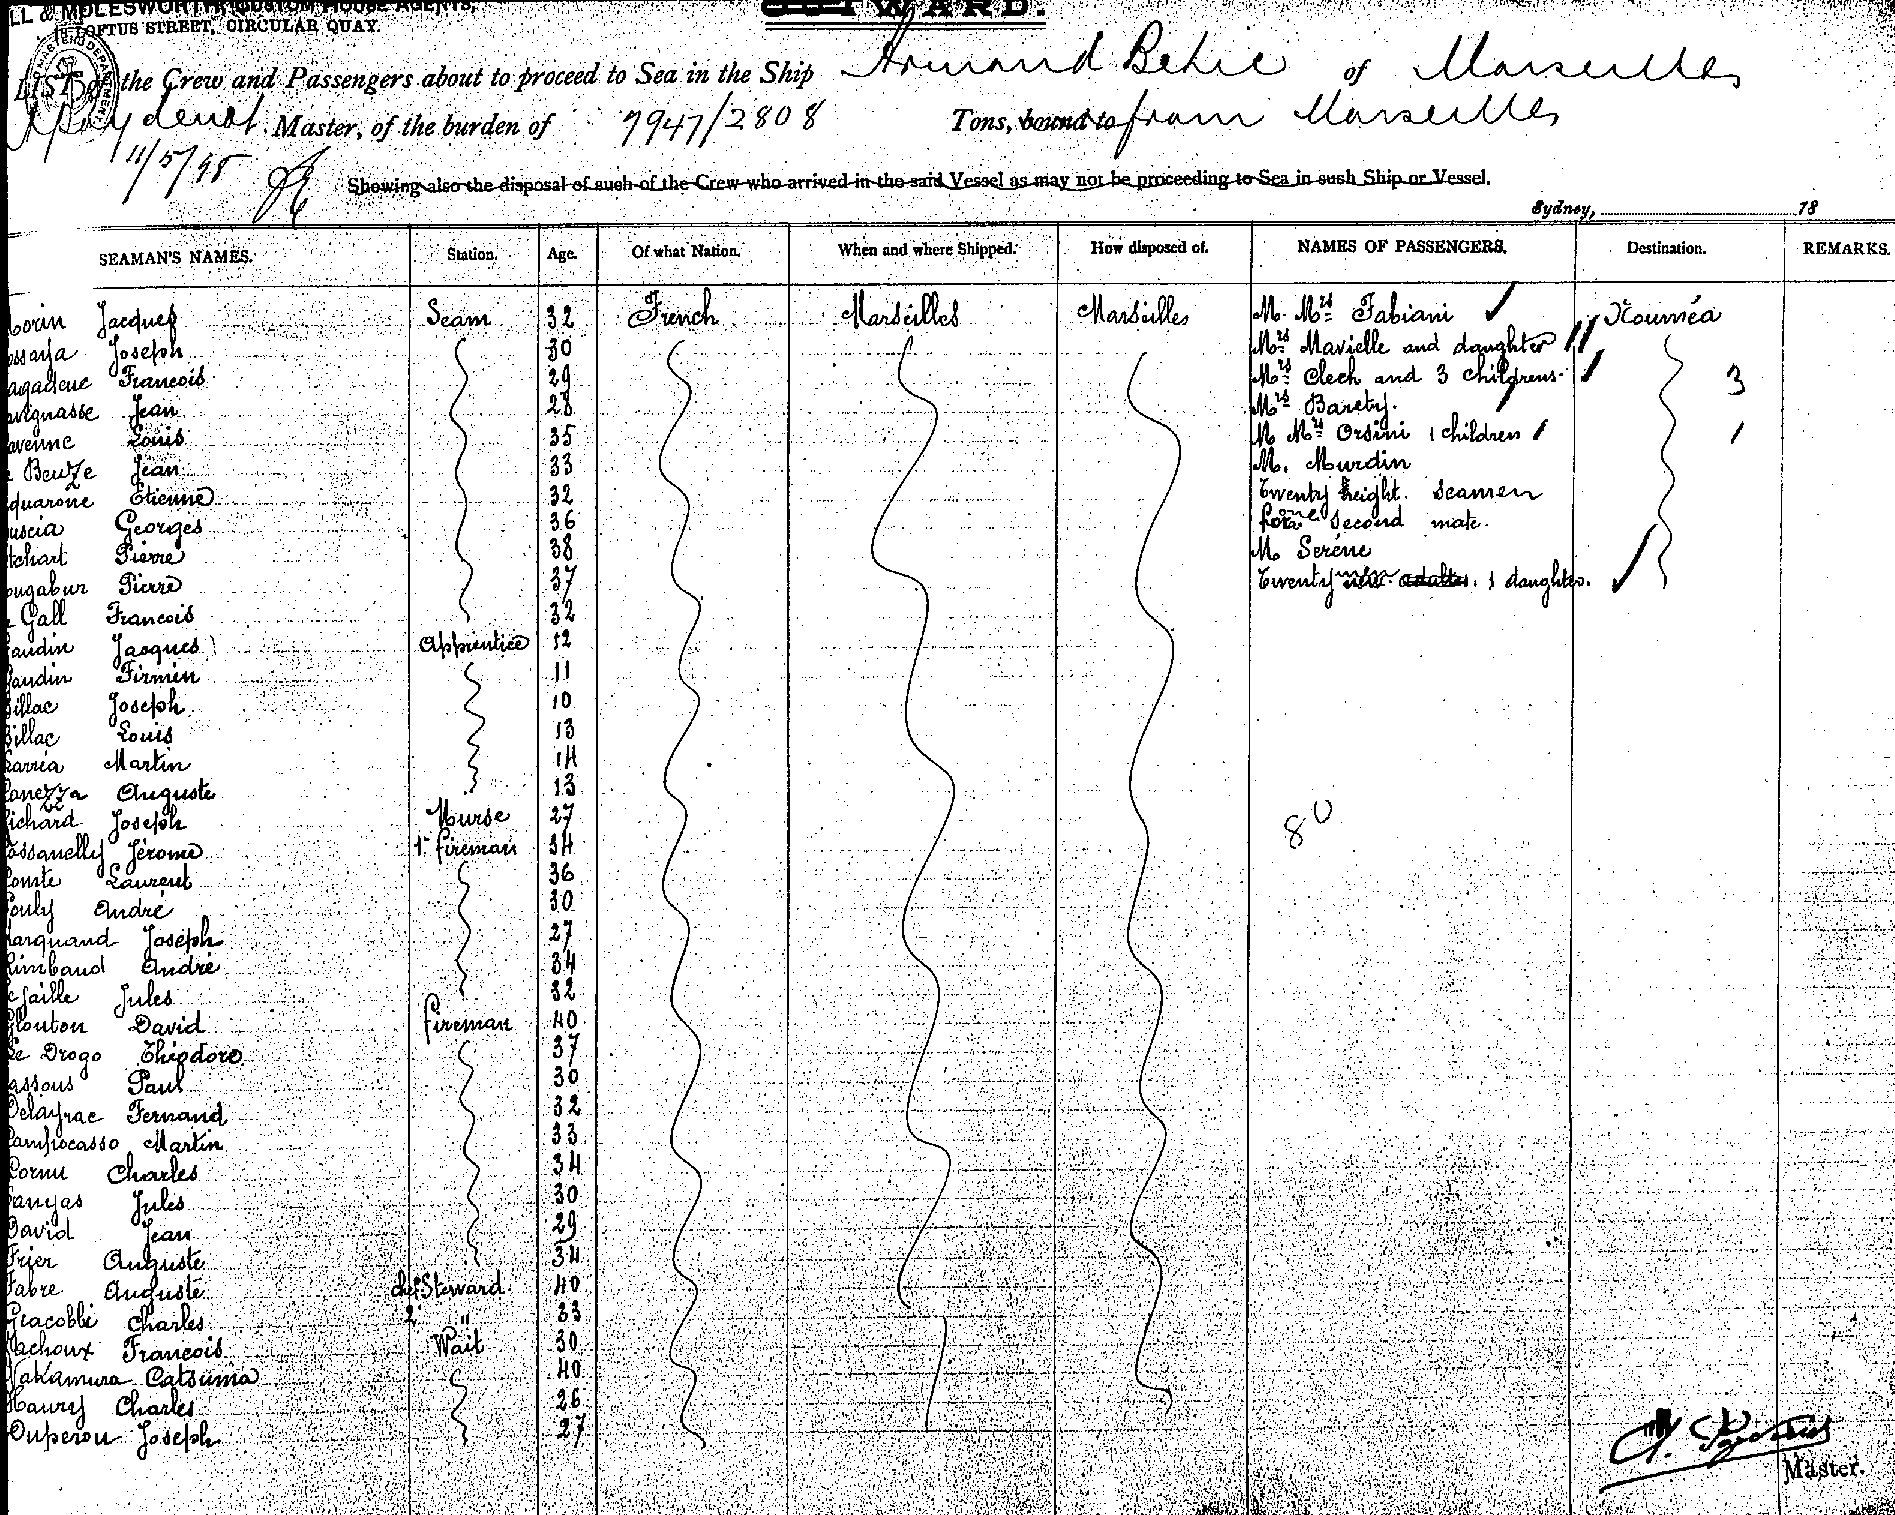 LL & MOLESWORTH, CUSTOM HOUSE AGENTS,
LOFTUS STREET, CIRCULAR QUAY.
OUTWARD.
LIST of the Crew and Passengers about to proceed to Sea in the Ship Armand Behic of Marseilles
Master, of the burden of 7947/2808 Tons, bound to from Marseilles
11/5/98
Showing also the disposal of such of the Crew who arrived in the said Vessel as may not be proceeding to Sea in such Ship or Vessel.
Sydney, 18
SEAMAN'S NAMES. Station. Age. Of what Nation. When and where Shipped. How disposed of. NAMES OF PASSENGERS. Destination. REMARKS.
orin Jacques Seam 32 French Marseilles Marseilles M. Mrs Fabiani Nouméa
ssaya Joseph 30 Mrs Mavielle and daughter
agadeuc Francois 29 Mrs Clech and 3 childrens. 3
avignasse Jean 28 Mrs Barety.
avenne Louis 35 M Mrs Orsini 1 children 1
e Beuze Jean 33 M. Murdin
quarone Etienne 32 Twenty height. Seamen
uscia Georges 36 one Second mate.
tchart Pierre 38 M Seréne
ougabur Pierre 37 Twenty men adultes. 1 daughter.
Gall Francois 32
audin Jacques Apprentice 12
audin Firmin 11
illac Joseph 10
illac Louis 13
arria Martin 14
anezza Auguste 13
ichard Joseph Nurse 27
ossanelly Jérome 1r fireman 34
omte Laurent 36
ouly André 30
arquand Joseph 27
imbaud André 34
e Jaille Jules 32
louton David fireman 40
Le Drogo Théodore 37
assous Paul 30
Delayrac Fernand 32
ampocasso Martin 33
Cornu Charles 34
anyas Jules 30
David Jean 29
rier Auguste 34
Fabre Auguste chef Steward 40
Giacobbi Charles 2 " 33
achoux Francois Wait 30
Nakamura Catsuma 40
Haury Charles 26
Duperou Joseph 27
80
Master.